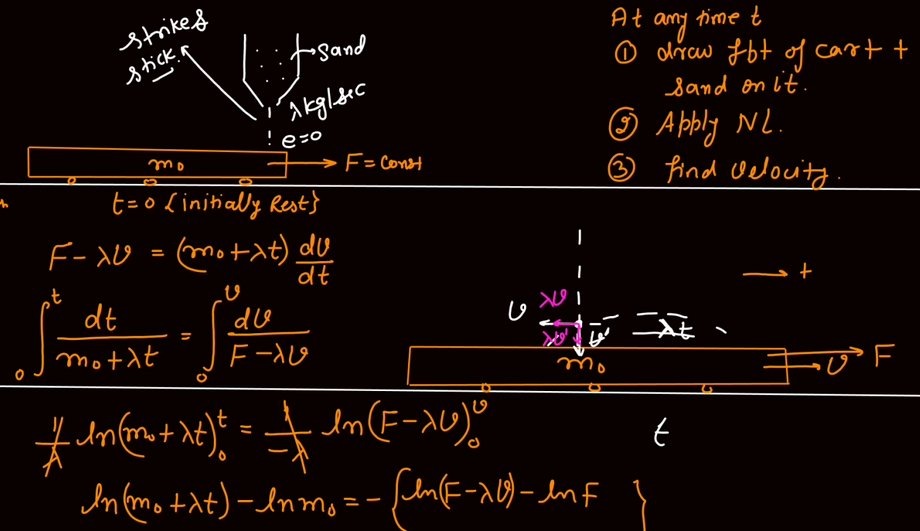 strikes
stick.
sand
λ kg/sec
e=0
m₀
F = const
At any time t
① draw fbt of cart +
sand on it.
② Apply NL.
③ find velocity.
t=0 {initially Rest}
F - λv = (m₀+λt) dv/dt
∫₀ᵗ dt/(m₀+λt) = ∫₀ᵛ dv/(F-λv)
→ +
v λv
λv' v' λt
m₀
F
v
t
1/λ ln(m₀+λt)₀ᵗ = 1/-λ ln(F-λv)₀ᵛ
ln(m₀+λt) - ln m₀ = - { ln(F-λv) - ln F }